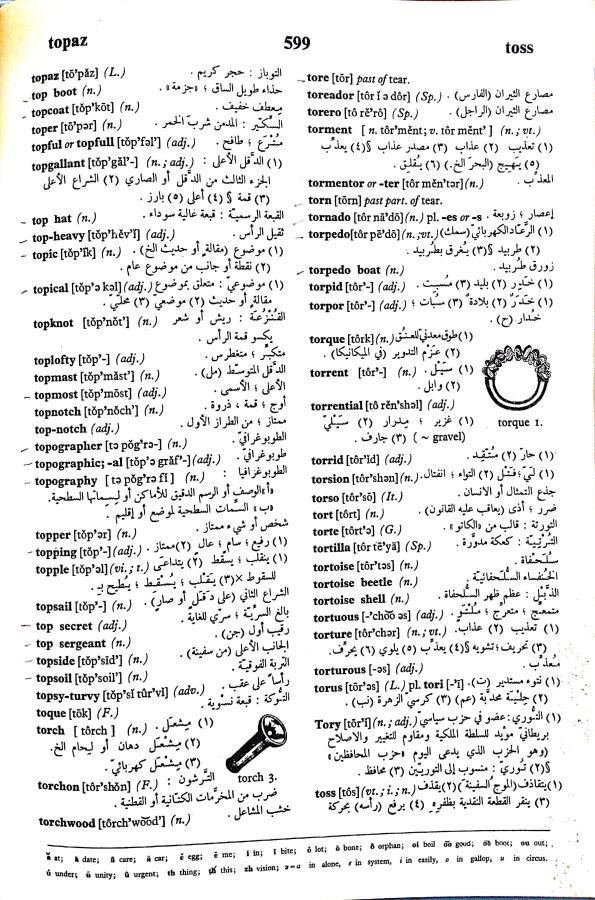 topaz
599
toss
topaz [tō'păz] (L.) التوباز : حجر كريم .
top boot (n.) حذاء طويل الساق ؛ «جزمة» .
topcoat [tŏp'kōt] (n.) معطف خفيف .
toper [tō'pər] (n.) السكّير : المدمن شرب الخمر .
topful or topfull [tŏp'fəl'] (adj.) مُتْرَع ؛ طافح .
topgallant [tŏp'găl'-] (n. ; adj.) (١) الدقل الأعلى :
الجزء الثالث من الدقل أو الصاري (٢) الشراع الأعلى
(٣) قمة § (٤) أعلى (٥) بارز .
top hat (n.) القبعة الرسمية : قبعة عالية سوداء .
top-heavy [tŏp'hĕv'ĭ] (adj.) ثقيل الرأس .
topic [tŏp'ĭk] (n.) (١) موضوع (مقالة أو حديث الخ) .
(٢) نقطة أو جانب من موضوع عام .
topical [tŏp'ə kəl] (adj.) (١) موضوعيّ : متعلق بموضوع
مقالة أو حديث (٢) موضعيّ (٣) محلّيّ .
topknot [tŏp'nŏt'] (n.) القُنْزُعَة : ريش أو شعر
يكسو قمة الرأس .
toplofty [tŏp'-] (adj.) متكبّر ؛ متغطرس .
topmast [tŏp'măst'] (n.) الدقل المتوسّط (مل) .
topmost [tŏp'mōst] (adj.) الأعلى ؛ الأسمى .
topnotch [tŏp'nŏch'] (n.) أوج ؛ قمة ، ذروة .
top-notch (adj.) ممتاز ؛ من الطراز الأول .
topographer [tə pŏg'rə-] (n.) الطوبوغرافيّ .
topographic; -al [tŏp'ə grăf'-] (adj.) طوبوغرافيّ .
topography [tə pŏg'rə fĭ] (n.) الطوبوغرافيا :
«أ» الوصف أو الرسم الدقيق للأماكن أو لسماتها السطحية.
«ب» السّمات السطحية لموضع أو إقليم .
topper [tŏp'ər] (n.) شخص أو شيء ممتاز .
topping [tŏp'-] (adj.) (١) رفيع ؛ سام ؛ عال (٢) ممتاز .
topple [tŏp'əl] (vi. ; t.) (١) ينقلب ؛ يسقط (٢) يتداعى
للسقوط ×(٣) يَقْلب ؛ يُسْقط ؛ يُطيح بـ .
topsail [tŏp'-] (n.) الشراع الثاني (على دقل أو صار) .
top secret (adj.) بالغ السريّة ؛ سرّيّ للغاية .
top sergeant (n.) رقيب أول (جن) .
topside [tŏp'sīd'] (n.) الجانب الأعلى (من سفينة) .
topsoil [tŏp'soil'] (n.) التربة الفوقيّة .
topsy-turvy [tŏp'sĭ tûr'vĭ] (adv.) رأساً على عقب .
toque [tōk] (F.) التوكة : قبعة نسوية .
torch [ tôrch ] (n.) (١) مِشعل .
(٢) مِشعل دهان أو لحام الخ.
(٣) مِشعل كهربائيّ .
torch 3.
torchon [tôr'shŏn] (F.) التَّرشون :
ضرب من المخرَّمات الكتانية أو القطنية .
torchwood [tôrch'wŏŏd'] (n.) خشب المشاعل .
tore [tōr] past of tear.
toreador [tôr ĭ ə dôr] (Sp.) مصارع الثيران (الفارس) .
torero [tō rĕ'rō] (Sp.) مصارع الثيران (الراجل) .
torment [ n. tôr'mĕnt; v. tôr mĕnt' ] (n. ; vt.)
(١) تعذيب (٢) عذاب (٣) مصدر عذاب §(٤) يعذّب
(٥) يهيج (البحر الخ.) (٦) يُقلق .
tormentor or -ter [tôr mĕn'tər] (n.) المعذِّب .
torn [tōrn] past part. of tear.
tornado [tôr nā'dō] (n.) pl. -es or -s إعصار ؛ زوبعة .
torpedo [tôr pē'dō] (n. ;vt.) (١) الرعّاد الكهربائيّ (سمك)
(٢) طربيد §(٣) يُغرق بطربيد .
torpedo boat (n.) زورق طربيد .
torpid [tôr'-] (adj.) (١) خَدِر (٢) بليد (٣) مُسْبِت .
torpor [tôr'-] (adj.) (١) خَدَر (٢) بلادة (٣) سُبات ؛
خُدار (ح) .
torque [tôrk] (n.) (١) طوق معدنيّ للعنق
(٢) عزم التدوير (في الميكانيكا) .
torrent [tôr'-] (n.) (١) سَيْل .
(٢) وابل .
torrential [tô rĕn'shəl] (adj.)
(١) غزير ؛ مدرار (٢) سَيْليّ
(~ gravel) (٣) جارف .
torque 1.
torrid [tôr'ĭd] (adj.) (١) حارّ (٢) مُتَّقِد .
torsion [tôr'shən] (n.) (١) ليّ ؛ فتل (٢) التواء ؛ انفتال .
torso [tôr'sō] (It.) جذع التمثال أو الانسان .
tort [tôrt] (n.) ضرر ؛ أذى (يعاقب عليه القانون) .
torte [tôrt'ə] (G.) التورتة : قالب من «الكاتو» .
tortilla [tôr tē'yä] (Sp.) التُّرتِيّة : كعكة مدوّرة .
tortoise [tôr'təs] (n.) سُلَحفاة .
tortoise beetle (n.) الخنفساء السُّلَحفائية .
tortoise shell (n.) الذَّبْل : عظم ظهر السلحفاة .
tortuous [-'chŏŏ əs] (adj.) متمعّج ؛ متعرّج ؛ مُلْتَوٍ .
torture [tôr'chər] (n. ; vt.) (١) تعذيب (٢) عذاب .
(٣) تحريف ؛ تشويه §(٤) يعذّب (٥) يلوي (٦) يحرّف .
torturous [-əs] (adj.) مُعذِّب .
torus [tōr'əs] (L.) pl. tori [-'ī] (١) نتوء مستدير (ت) .
(٢) حِلْيَة محدّبة (عم) (٣) كرسيّ الزهرة (نب) .
Tory [tōr'ĭ] (n. ; adj.) (١) التوري : عضو في حزب سياسيّ
بريطانيّ مؤيد للسلطة الملكية ومقاوم للتغيير والاصلاح
(وهو الحزب الذي يدعى اليوم «حزب المحافظين»
§(٢) توريّ : منسوب إلى التوريين (٣) محافظ .
toss [tôs] (vt. ; i. ; n.) (١) يتقاذف (الموج السفينة) (٢) يقذف
(٣) ينقر القطعة النقدية بظفره (٤) يرفع (رأسه) بحركة
ă at; ā date; â care; ä car; ĕ egg; ē me; ĭ in; ī bite; ŏ lot; ō bone; ô orphan; oi boil ŏŏ good; ōō boot; ou out;
ŭ under; ū unity; û urgent; th thing; th this; zh vision; ə = a in alone, e in system, i in easily, o in gallop, u in circus.